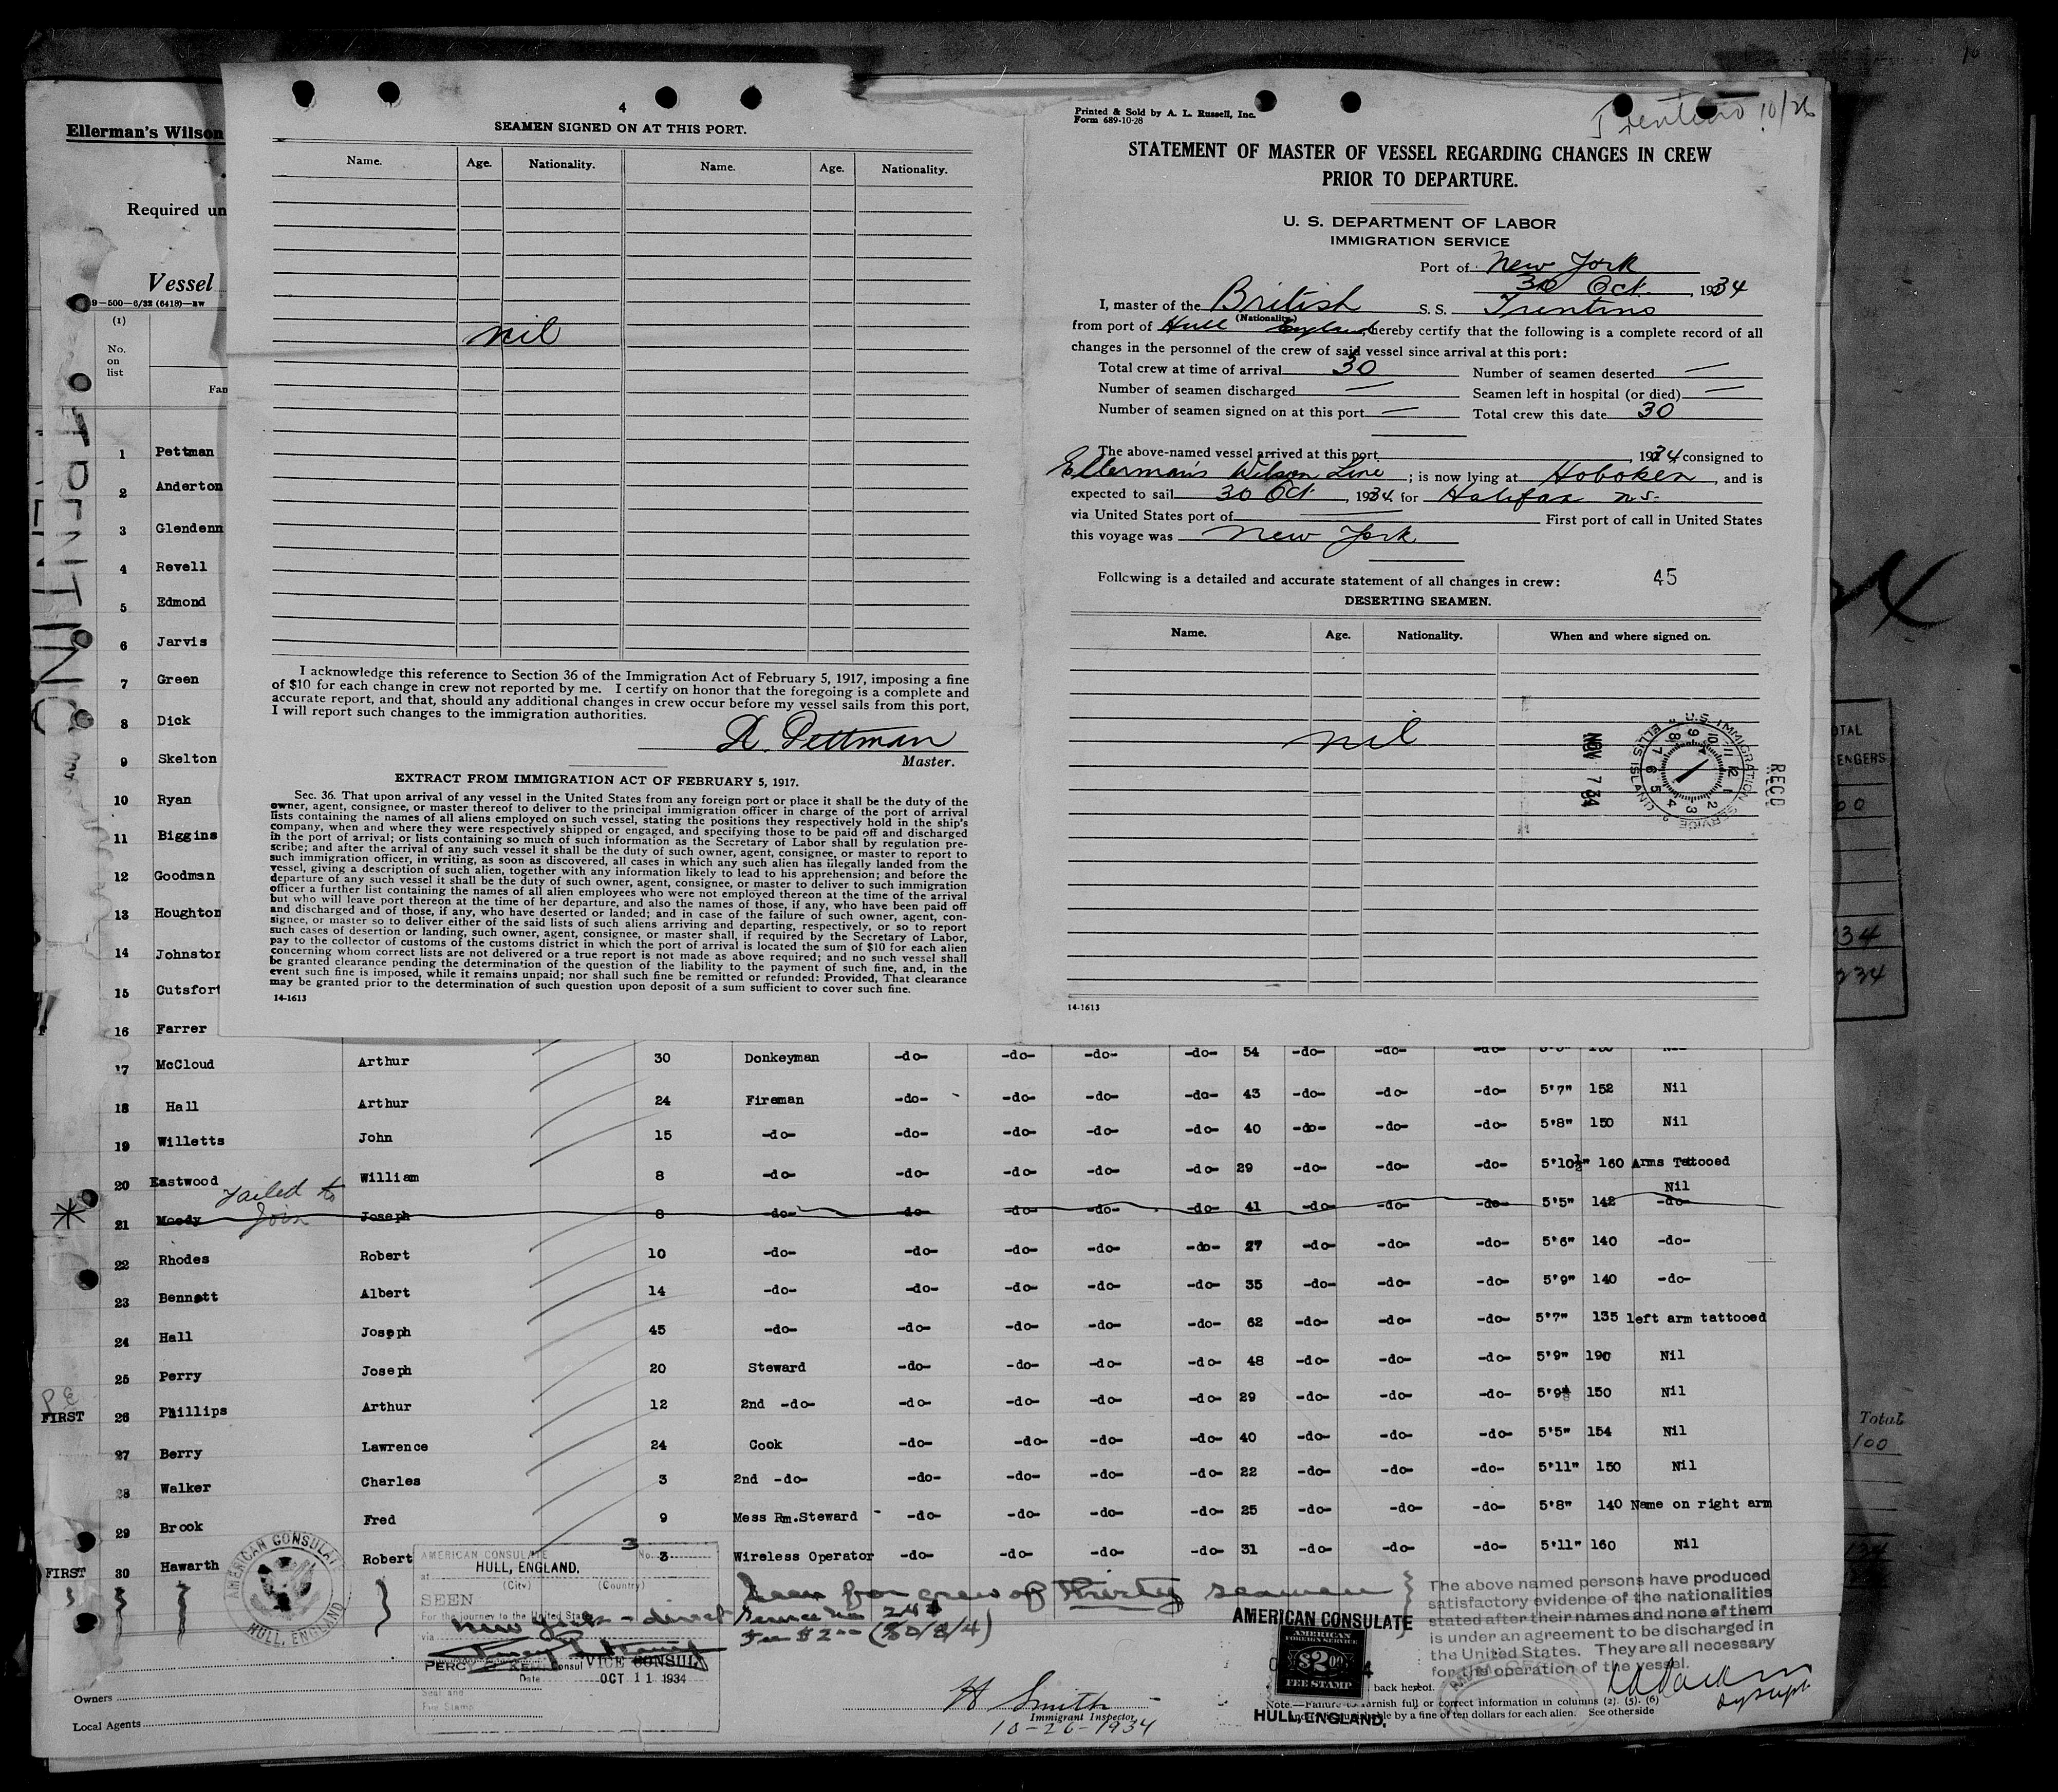 4
SEAMEN SIGNED ON AT THIS PORT.
Name. Age. Nationality. Name. Age. Nationality.
nil
I acknowledge this reference to Section 36 of the Immigration Act of February 5, 1917, imposing a fine
of $10 for each change in crew not reported by me. I certify on honor that the foregoing is a complete and
accurate report, and that, should any additional changes in crew occur before my vessel sails from this port,
I will report such changes to the immigration authorities.
Pettman
Master.
EXTRACT FROM IMMIGRATION ACT OF FEBRUARY 5, 1917.
Sec. 36. That upon arrival of any vessel in the United States from any foreign port or place it shall be the duty of the
owner, agent, consignee, or master thereof to deliver to the principal immigration officer in charge of the port of arrival
lists containing the names of all aliens employed on such vessel, stating the positions they respectively hold in the ship's
company, when and where they were respectively shipped or engaged, and specifying those to be paid off and discharged
in the port of arrival; or lists containing so much of such information as the Secretary of Labor shall by regulation pre-
scribe; and after the arrival of any such vessel it shall be the duty of such owner, agent, consignee, or master to report to
such immigration officer, in writing, as soon as discovered, all cases in which any such alien has illegally landed from the
vessel, giving a description of such alien, together with any information likely to lead to his apprehension; and before the
departure of any such vessel it shall be the duty of such owner, agent, consignee, or master to deliver to such immigration
officer a further list containing the names of all alien employees who were not employed thereon at the time of the arrival
but who will leave port thereon at the time of her departure, and also the names of those, if any, who have been paid off
and discharged and of those, if any, who have deserted or landed; and in case of the failure of such owner, agent, con-
signee, or master so to deliver either of the said lists of such aliens arriving and departing, respectively, or so to report
such cases of desertion or landing, such owner, agent, consignee, or master shall, if required by the Secretary of Labor,
pay to the collector of customs of the customs district in which the port of arrival is located the sum of $10 for each alien
concerning whom correct lists are not delivered or a true report is not made as above required; and no such vessel shall
be granted clearance pending the determination of the question of the liability to the payment of such fine, and, in the
event such fine is imposed, while it remains unpaid; nor shall such fine be remitted or refunded: Provided, That clearance
may be granted prior to the determination of such question upon deposit of a sum sufficient to cover such fine.
14-1613
Printed & Sold by A. L. Russell, Inc.
Form 689-10-28
Trentino 10/26
STATEMENT OF MASTER OF VESSEL REGARDING CHANGES IN CREW
PRIOR TO DEPARTURE.
U. S. DEPARTMENT OF LABOR
IMMIGRATION SERVICE
Port of New York
30 Oct. , 1934
I, master of the British S. S. Trentino
(Nationality)
from port of Hull England hereby certify that the following is a complete record of all
changes in the personnel of the crew of said vessel since arrival at this port:
Total crew at time of arrival 30 Number of seamen deserted —
Number of seamen discharged — Seamen left in hospital (or died) —
Number of seamen signed on at this port — Total crew this date 30
The above-named vessel arrived at this port , 1934 consigned to
Ellerman's Wilson Line ; is now lying at Hoboken , and is
expected to sail 30 Oct , 1934, for Halifax N.S.
via United States port of — First port of call in United States
this voyage was New York
Following is a detailed and accurate statement of all changes in crew: 45
DESERTING SEAMEN.
Name. Age. Nationality. When and where signed on.
nil
NOV 7 34
U.S. IMMIGRATION SERVICE ELLIS ISLAND
RECD
14-1613
Ellerman's Wilson
Required un
Vessel
9-500-6/32 (6418)-BW
(1)
No.
on
list
Fan
TRENTINO
1 Pettman
2 Anderton
3 Glendenn
4 Revell
5 Edmond
6 Jarvis
7 Green
8 Dick
9 Skelton
10 Ryan
11 Biggins
12 Goodman
13 Houghton
14 Johnston
15 Cutsfort
16 Farrer
17 McCloud Arthur 30 Donkeyman -do- -do- -do- -do- 54 -do- -do- -do-
18 Hall Arthur 24 Fireman -do- -do- -do- -do- 43 -do- -do- -do- 5'7" 152 Nil
19 Willetts John 15 -do- -do- -do- -do- -do- 40 -do- -do- -do- 5'8" 150 Nil
20 Eastwood William 8 -do- -do- -do- -do- -do- 29 -do- -do- -do- 5'10½" 160 Arms Tattooed
Nil
21 Moody Failed to Join Joseph 8 -do- -do- -do- -do- -do- 41 -do- -do- -do- 5'5" 142 -do-
22 Rhodes Robert 10 -do- -do- -do- -do- -do- 27 -do- -do- -do- 5'6" 140 -do-
23 Bennett Albert 14 -do- -do- -do- -do- -do- 35 -do- -do- -do- 5'9" 140 -do-
24 Hall Joseph 45 -do- -do- -do- -do- -do- 62 -do- -do- -do- 5'7" 135 left arm tattooed
25 Perry Joseph 20 Steward -do- -do- -do- -do- 48 -do- -do- -do- 5'9" 190 Nil
FIRST 26 Phillips Arthur 12 2nd -do- -do- -do- -do- -do- 29 -do- -do- -do- 5'9 150 Nil
27 Berry Lawrence 24 Cook -do- -do- -do- -do- 40 -do- -do- -do- 5'5" 154 Nil
28 Walker Charles 3 2nd -do- -do- -do- -do- -do- 22 -do- -do- -do- 5'11" 150 Nil
29 Brook Fred 9 Mess Rm.Steward -do- -do- -do- -do- 25 -do- -do- -do- 5'8" 140 Name on right arm
FIRST 30 Hawarth Robert 3 Wireless Operator -do- -do- -do- -do- 31 -do- -do- -do- 5'11" 160 Nil
AMERICAN CONSULATE
HULL, ENGLAND
AMERICAN CONSULATE No. 3
at HULL, ENGLAND.
(City) (Country)
SEEN
For the journey to the United States
New York - direct
via
VICE CONSUL
Date OCT 11 1934
Seal and
Fee Stamp
Seen for crew of thirty seamen
Service No. 248
Fee $2.00
AMERICAN CONSULATE
AMERICAN
FOREIGN SERVICE
$2.00
FEE STAMP
HULL, ENGLAND.
The above named persons have produced
satisfactory evidence of the nationalities
stated after their names and none of them
is under an agreement to be discharged in
the United States. They are all necessary
for the operation of the vessel.
Owners
Local Agents
H Smith
Immigrant Inspector
10-26-1934
back hereof.
Note.—Failure to furnish full or correct information in columns (2). (5). (6)
punishable by a fine of ten dollars for each alien. See other side
OTAL
ENGERS
00
34
234
Total
100